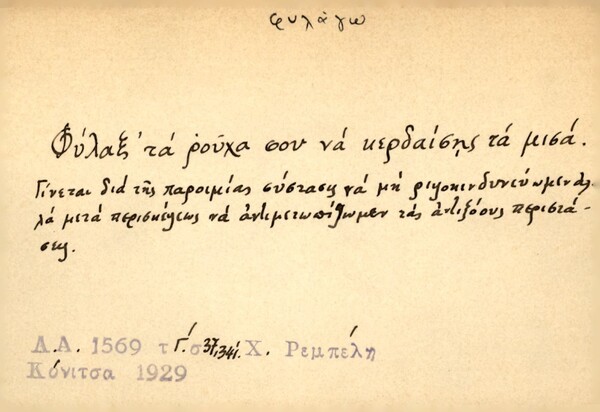 φυλάγω
Φύλαξ' τά ῥοῦχα σου νά κερδαίσῃς τά μισά.
Γίνεται διά τῆς παροιμίας σύστασις νά μή ριψοκινδυνεύωμεν ἀλ
λά μετά περισκέψεως νά ἀντιμετωπίζωμεν τάς ἀντιξόους περιστά-
σεις.
Λ.Α. 1569 τ Γ' σ 37,341. Χ. Ρεμπέλη
Κόνιτσα 1929